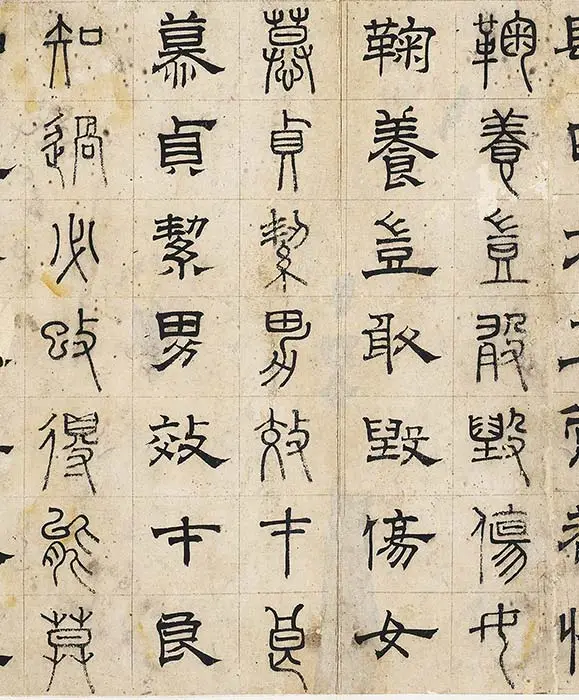 鞠養豈敢毀傷女
鞠養豈敢毀傷女
慕貞絜男效才良
慕貞絜男效才良
知過必改得能莫